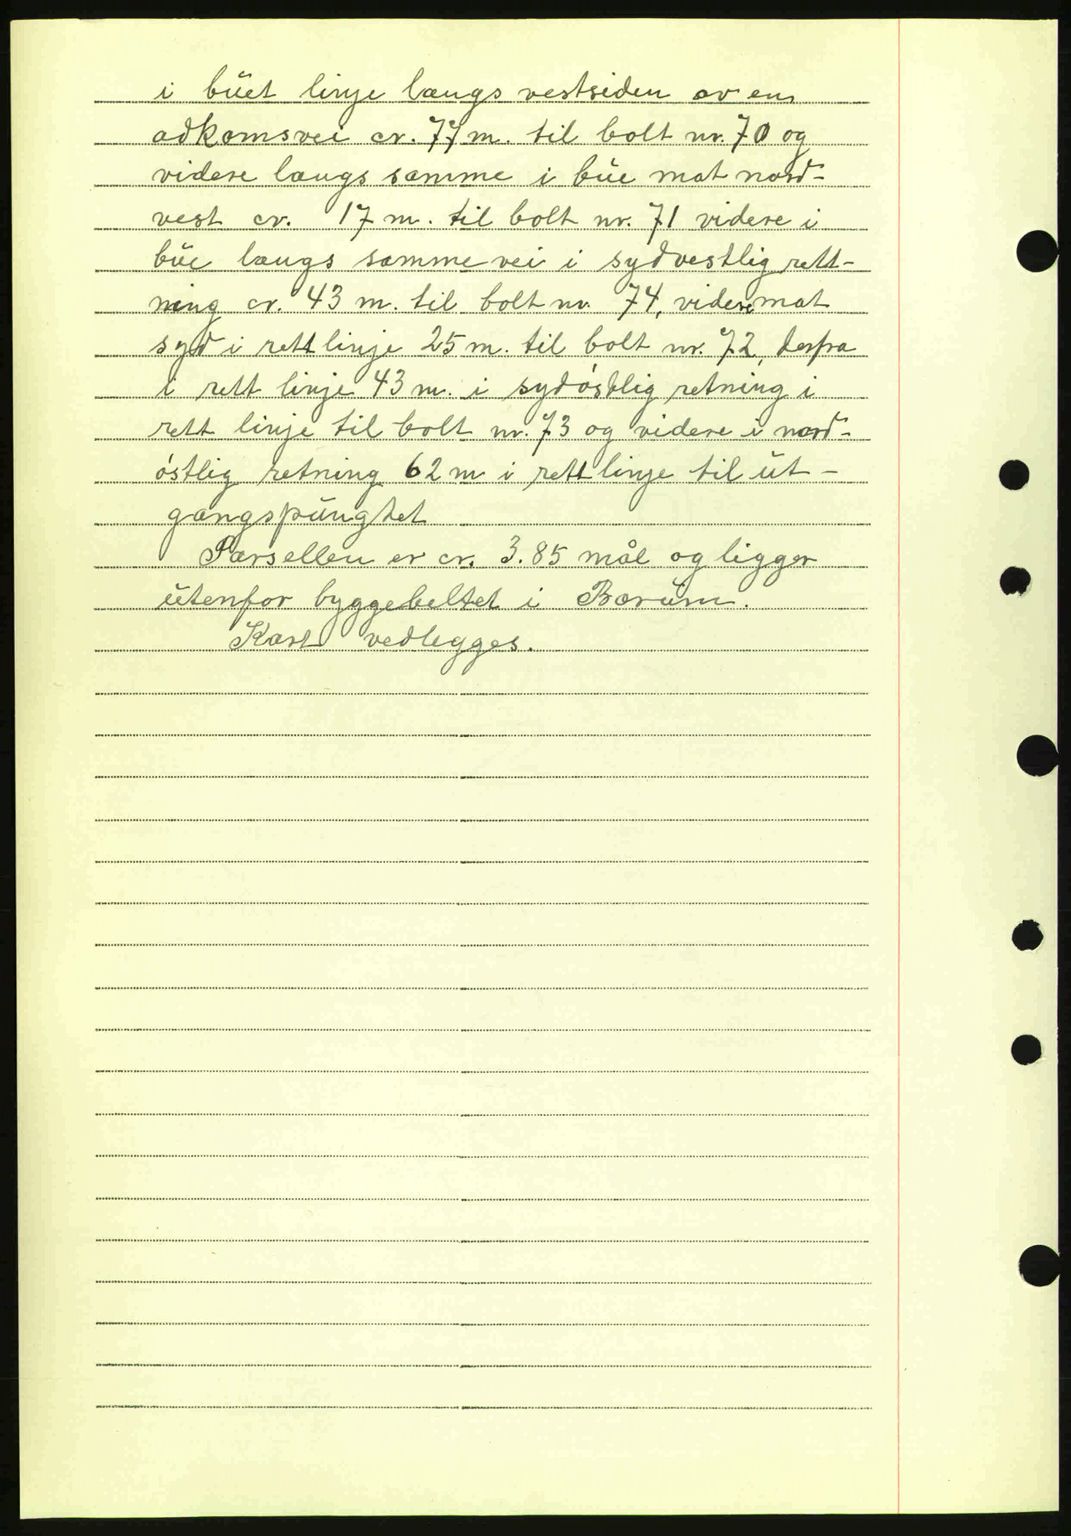 i buet linje langs vestsiden av en
adkomsvei cr. 77 m. til bolt nr. 70 og
videre langs samme i bue mot nord-
vest cr. 17 m. til bolt nr. 71 videre i
bue langs samme vei i sydvestlig rett-
ning cr. 43 m. til bolt nr. 74, videre mot
syd i rett linje 25 m. til bolt nr. 72, derfra
i rett linje 43 m. i sydóstlig retning i
rett linje til bolt nr. 73 og videre i nord-
óstlig retning 62 m i rett linje til ut-
gangspungtet
Parsellen er cr. 3.85 mål og ligger
utenfor byggebeltet i Bærum.
Kart vedlegges.